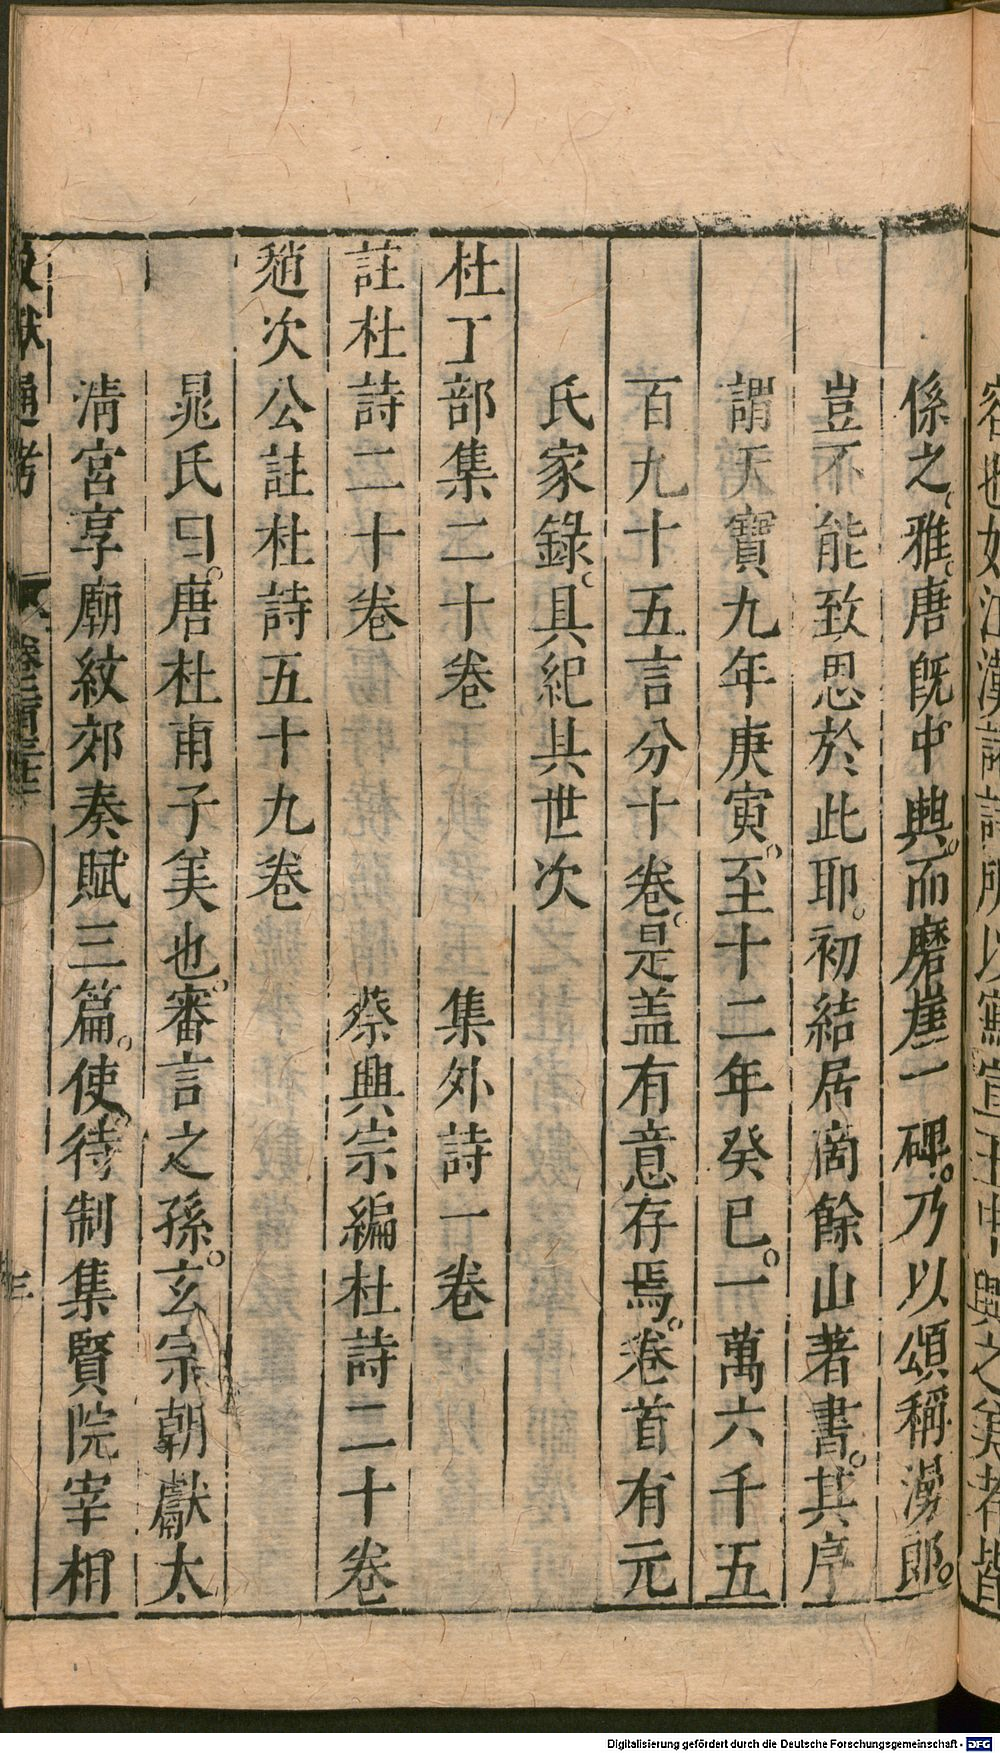 係之雅唐既中興而磨崖一碑乃以頌稱漫郎
豈不能致思於此耶初結居商餘山著書其序
謂天寶九年庚寅至十二年癸巳一萬六千五
百九十五言分十卷是盖有意存焉卷首有元
氏家錄具紀其世次
杜工部集二十卷 集外詩一卷
註杜詩二十卷 蔡興宗編杜詩二十卷
趙次公註杜詩五十九卷
晁氏曰唐杜甫子美也審言之孫玄宗朝獻太
清宮享廟紋郊奏賦三篇使待制集賢院宰相
文獻通考
Digitalisierung gefördert durch die Deutsche Forschungsgemeinschaft - DFG